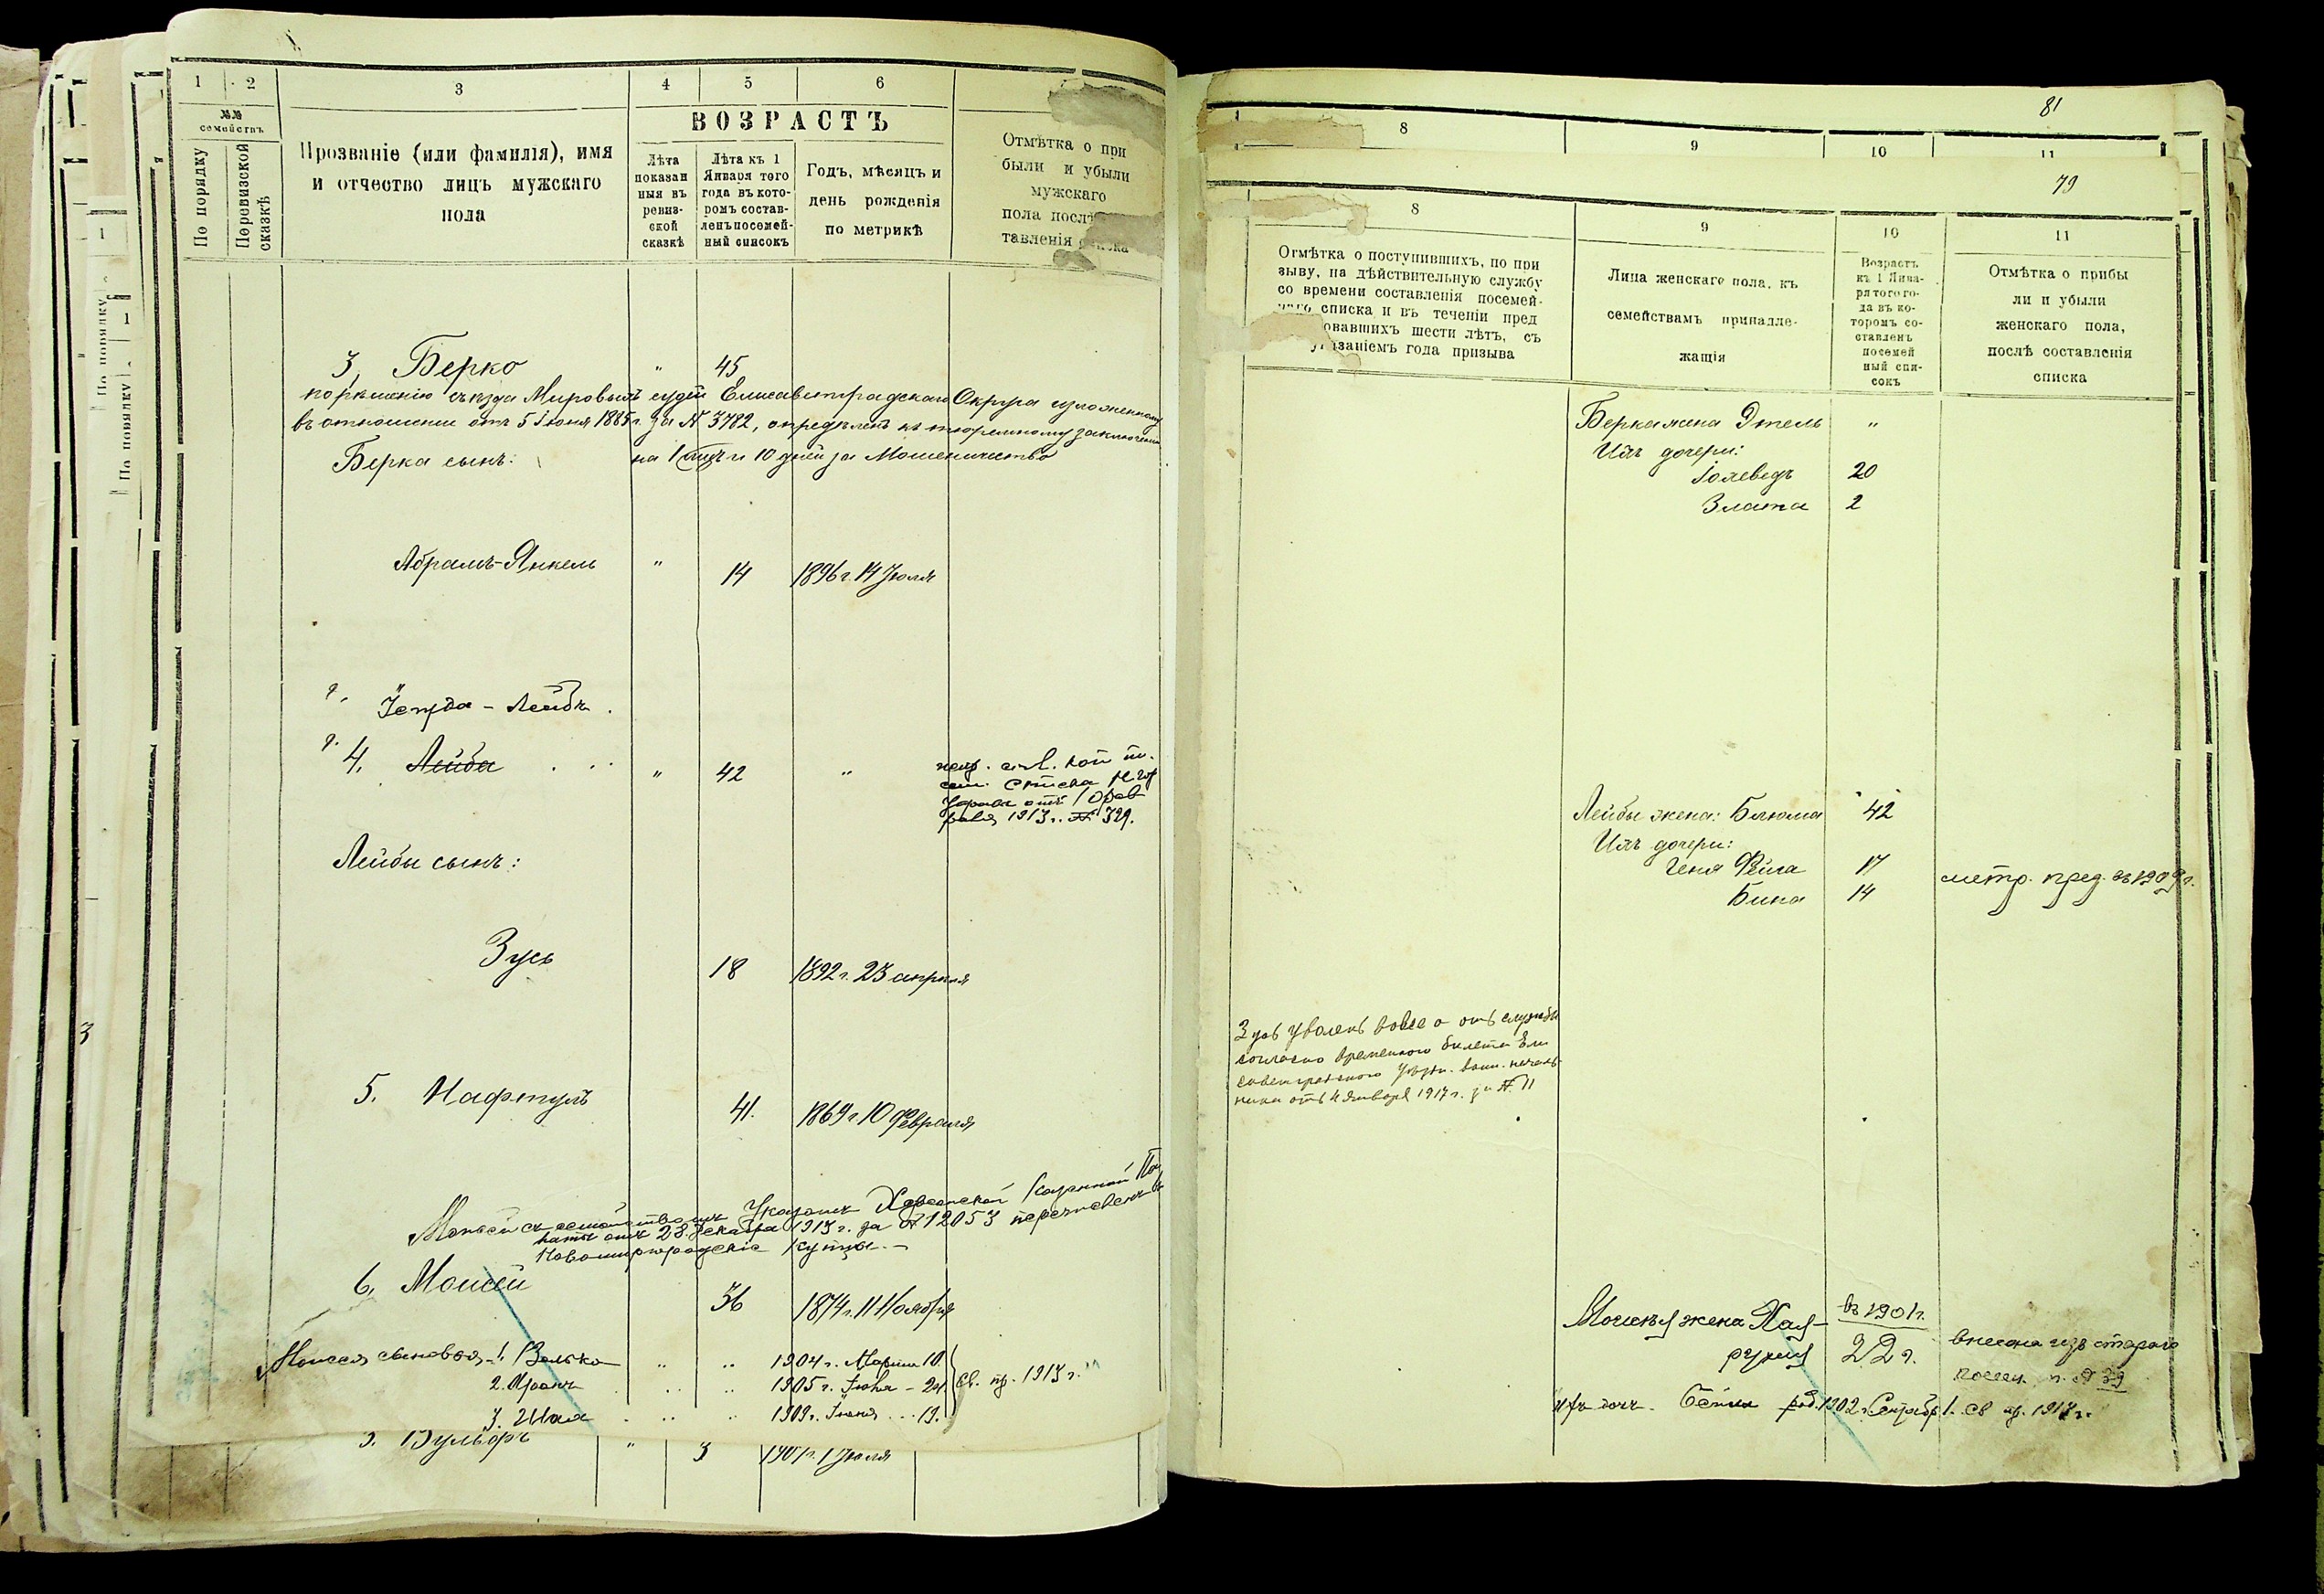 1 2 3 4 5 6
№№ семействъ
По порядку
По ревизской сказкѣ
Прозваніе (или фамилія), имя
и отчество лицъ мужскаго
пола
ВОЗРАСТЪ
Лѣта
показан
ныя въ
ревиз-
ской
сказкѣ
Лѣта къ 1
Января того
года въ кото-
ромъ состав-
ленъ посемей-
ный списокъ
Годъ, мѣсяцъ и
день рожденія
по метрикѣ
Отмѣтка о при
были и убыли
мужскаго
пола послѣ
тавленія
3, Берко " 45
по рѣшенію съѣзда Мировыхъ судей Елисаветградскаго Округа изложенному
въ отношеніи отъ 5 Іюня 1885 г. за № 3782, опредѣленъ къ тюремному заключенію
на 1 мѣсяцъ и 10 дней за Мошеничество
Берка сынъ:
Абрамъ-Янкель " 14 1896 г. 14 Іюля
Лейбъ.
4. Лейба " 42 "
списка
1913 г. № 329.
Лейбы сынъ:
Зусь 18 1892 г. 23 апрѣля
5. Нафтулъ 41. 1869 г. 10 Февраля
Моисей съ семействомъ Указомъ Херсонской Казенной Па
латы отъ 28 Декабря 1913 г. за № 12053 перечисленъ въ
Новомиргородскіе Купцы.
6. Моисей 36 1874 г. 11 Ноября
Моисея сыновья 1. Волько " " 1904 г. Марта 10.
2. Аронъ " " 1905 г. 24. св. пр. 1913 г.
3. Шая " " 1909 г. Іюня 19.
3. Вульфъ " 3 1901 г. 1 Іюля
3
81
8 9 10 11
79
8 9 10 11
Отмѣтка о поступившихъ, по при
зыву, на дѣйствительную службу
со времени составленія посемей-
списка и въ теченіи пред
овавшихъ шести лѣтъ, съ
указаніемъ года призыва
Лица женскаго пола, къ
семействамъ принадле-
жащія
Возрастъ
къ 1 Янва-
ря того го-
да въ ко-
торомъ со-
ставленъ
посемей
ный спи-
сокъ
Отмѣтка о прибы
ли и убыли
женскаго пола,
послѣ составленія
списка
Берка жена Этель "
Ихъ дочери:
Іохеведъ 20
Злата 2
Лейбы жена: Блюма 42
Ихъ дочери:
Геня Фейга 17 метр. пред. въ 1909 г.
Бина 14
Зусь уволенъ вовсе отъ службы
согласно временного билета Ели
саветградского Уѣздн. воин. началь
ника отъ 4 января 1917 г. за № 11
Моисея жена Хая- въ 1901 г.
рухля 22 г. внесена изъ стараго
посем. № 39
ихъ дочь Бейла род. 1902 г. Сентябр 1. св пр. 1913 г.